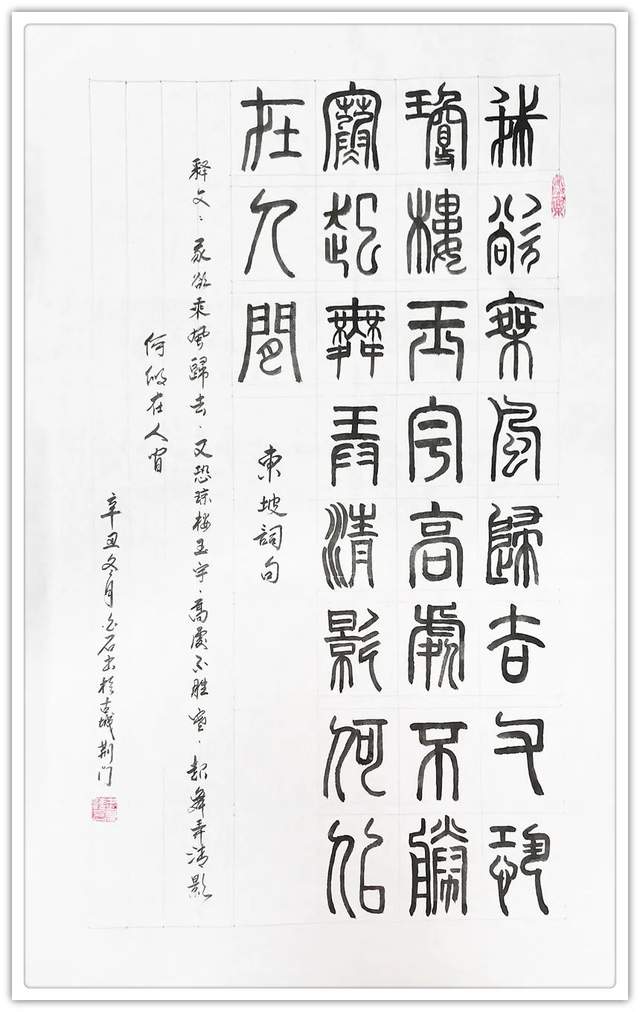 我欲乘風歸去又恐
瓊樓玉宇高處不勝
寒起舞弄清影何似
在人間
東坡詞句
释文、我欲乘風歸去、又恐琼楼玉宇、高處不胜寒、起舞弄清影
何似在人间
辛丑冬月石书於古城荆门